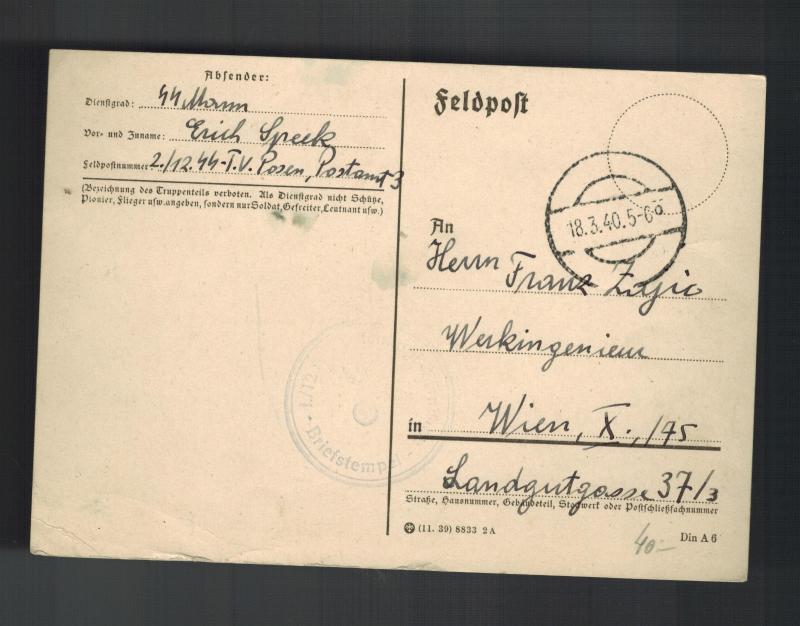 Absender:
Dienstgrad: ᛋᛋ Mann
Vor- und Zuname: Erich Speek
Feldpostnummer 2./12. ᛋᛋ-T.V. Posen, Postamt 3
(Bezeichnung des Truppenteils verboten. Als Dienstgrad nicht Schütze,
Pionier, Flieger usw. angeben, sondern nur Soldat, Gefreiter, Leutnant usw.)
1./12.
• Briefstempel •
Feldpost
18.3.40.5-6
An
Herrn Franz Zajic
Werkingenieur
in Wien, X., /75
Landgutgasse 37/3
Straße, Hausnummer, Gebäudeteil, Stockwerk oder Postschließfachnummer
(11. 39) 8833 2 A
Din A 6
40.-